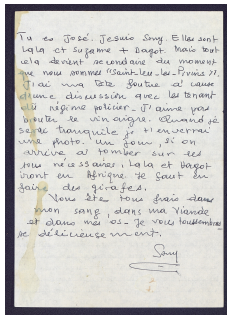 Tu es José. Je suis Sony. Elles sont
Lala et Suzanne + Bagot. Mais tout
cela devient secondaire du moment
que nous sommes "Saint-Leu-les-Pruins".
J'ai ma tête foutue à cause
d'une discussion avec les tenant
du régime policier. J'aime pas
boire le vinaigre. Quand je
serai tranquile je t'enverrai
une photo. Un jour, si on
arrive à tomber sur les
sous nécessaires, Lala et Bagot
iront en Afrique. Il faut en
faire des girafes.
Vous êtes tous frais dans
mon sang, dans ma viande
et dans mes os. Je vous
délicieusement.
Sony